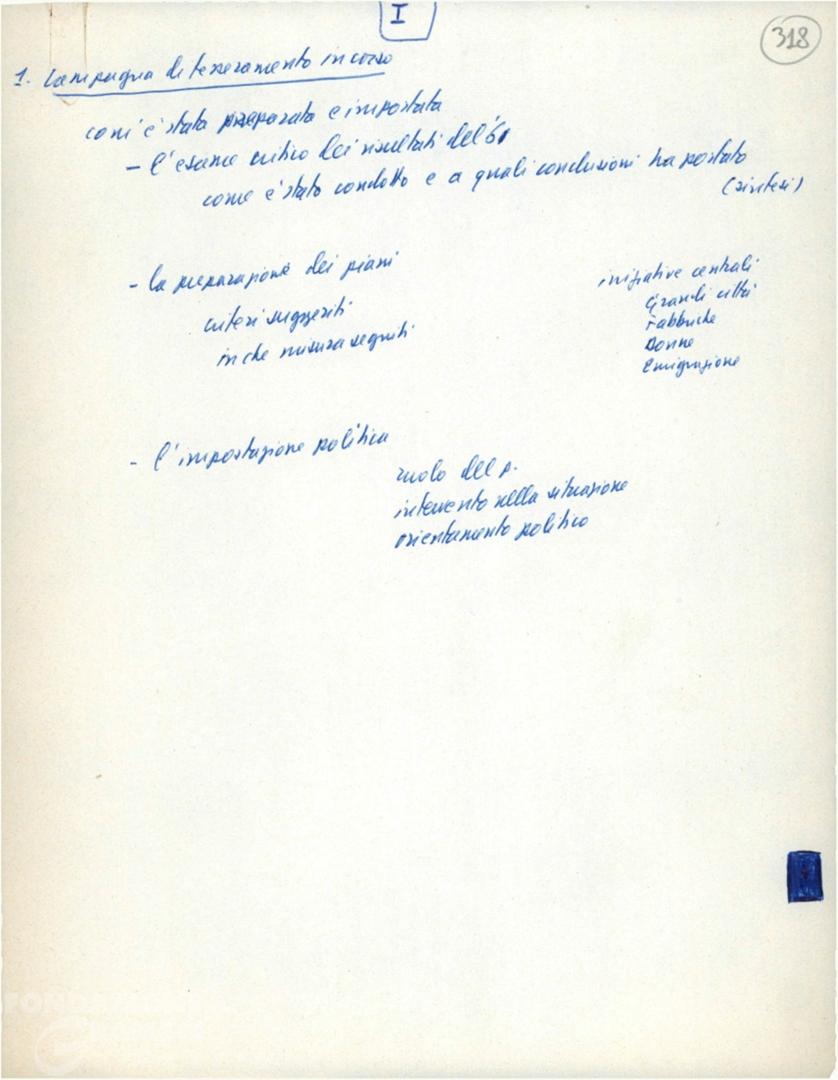 I
318
1. Campagna di tesseramento in corso
com'è stata preparata e impostata
- l'esame critico dei risultati del '61
come è stato condotto e a quali conclusioni ha portato
(sintesi)
- la preparazione dei piani
criteri suggeriti
in che misura seguiti
iniziative centrali
Grandi città
Fabbriche
Donne
Emigrazione
- l'impostazione politica
ruolo del p.
intervento nella situazione
orientamento politico